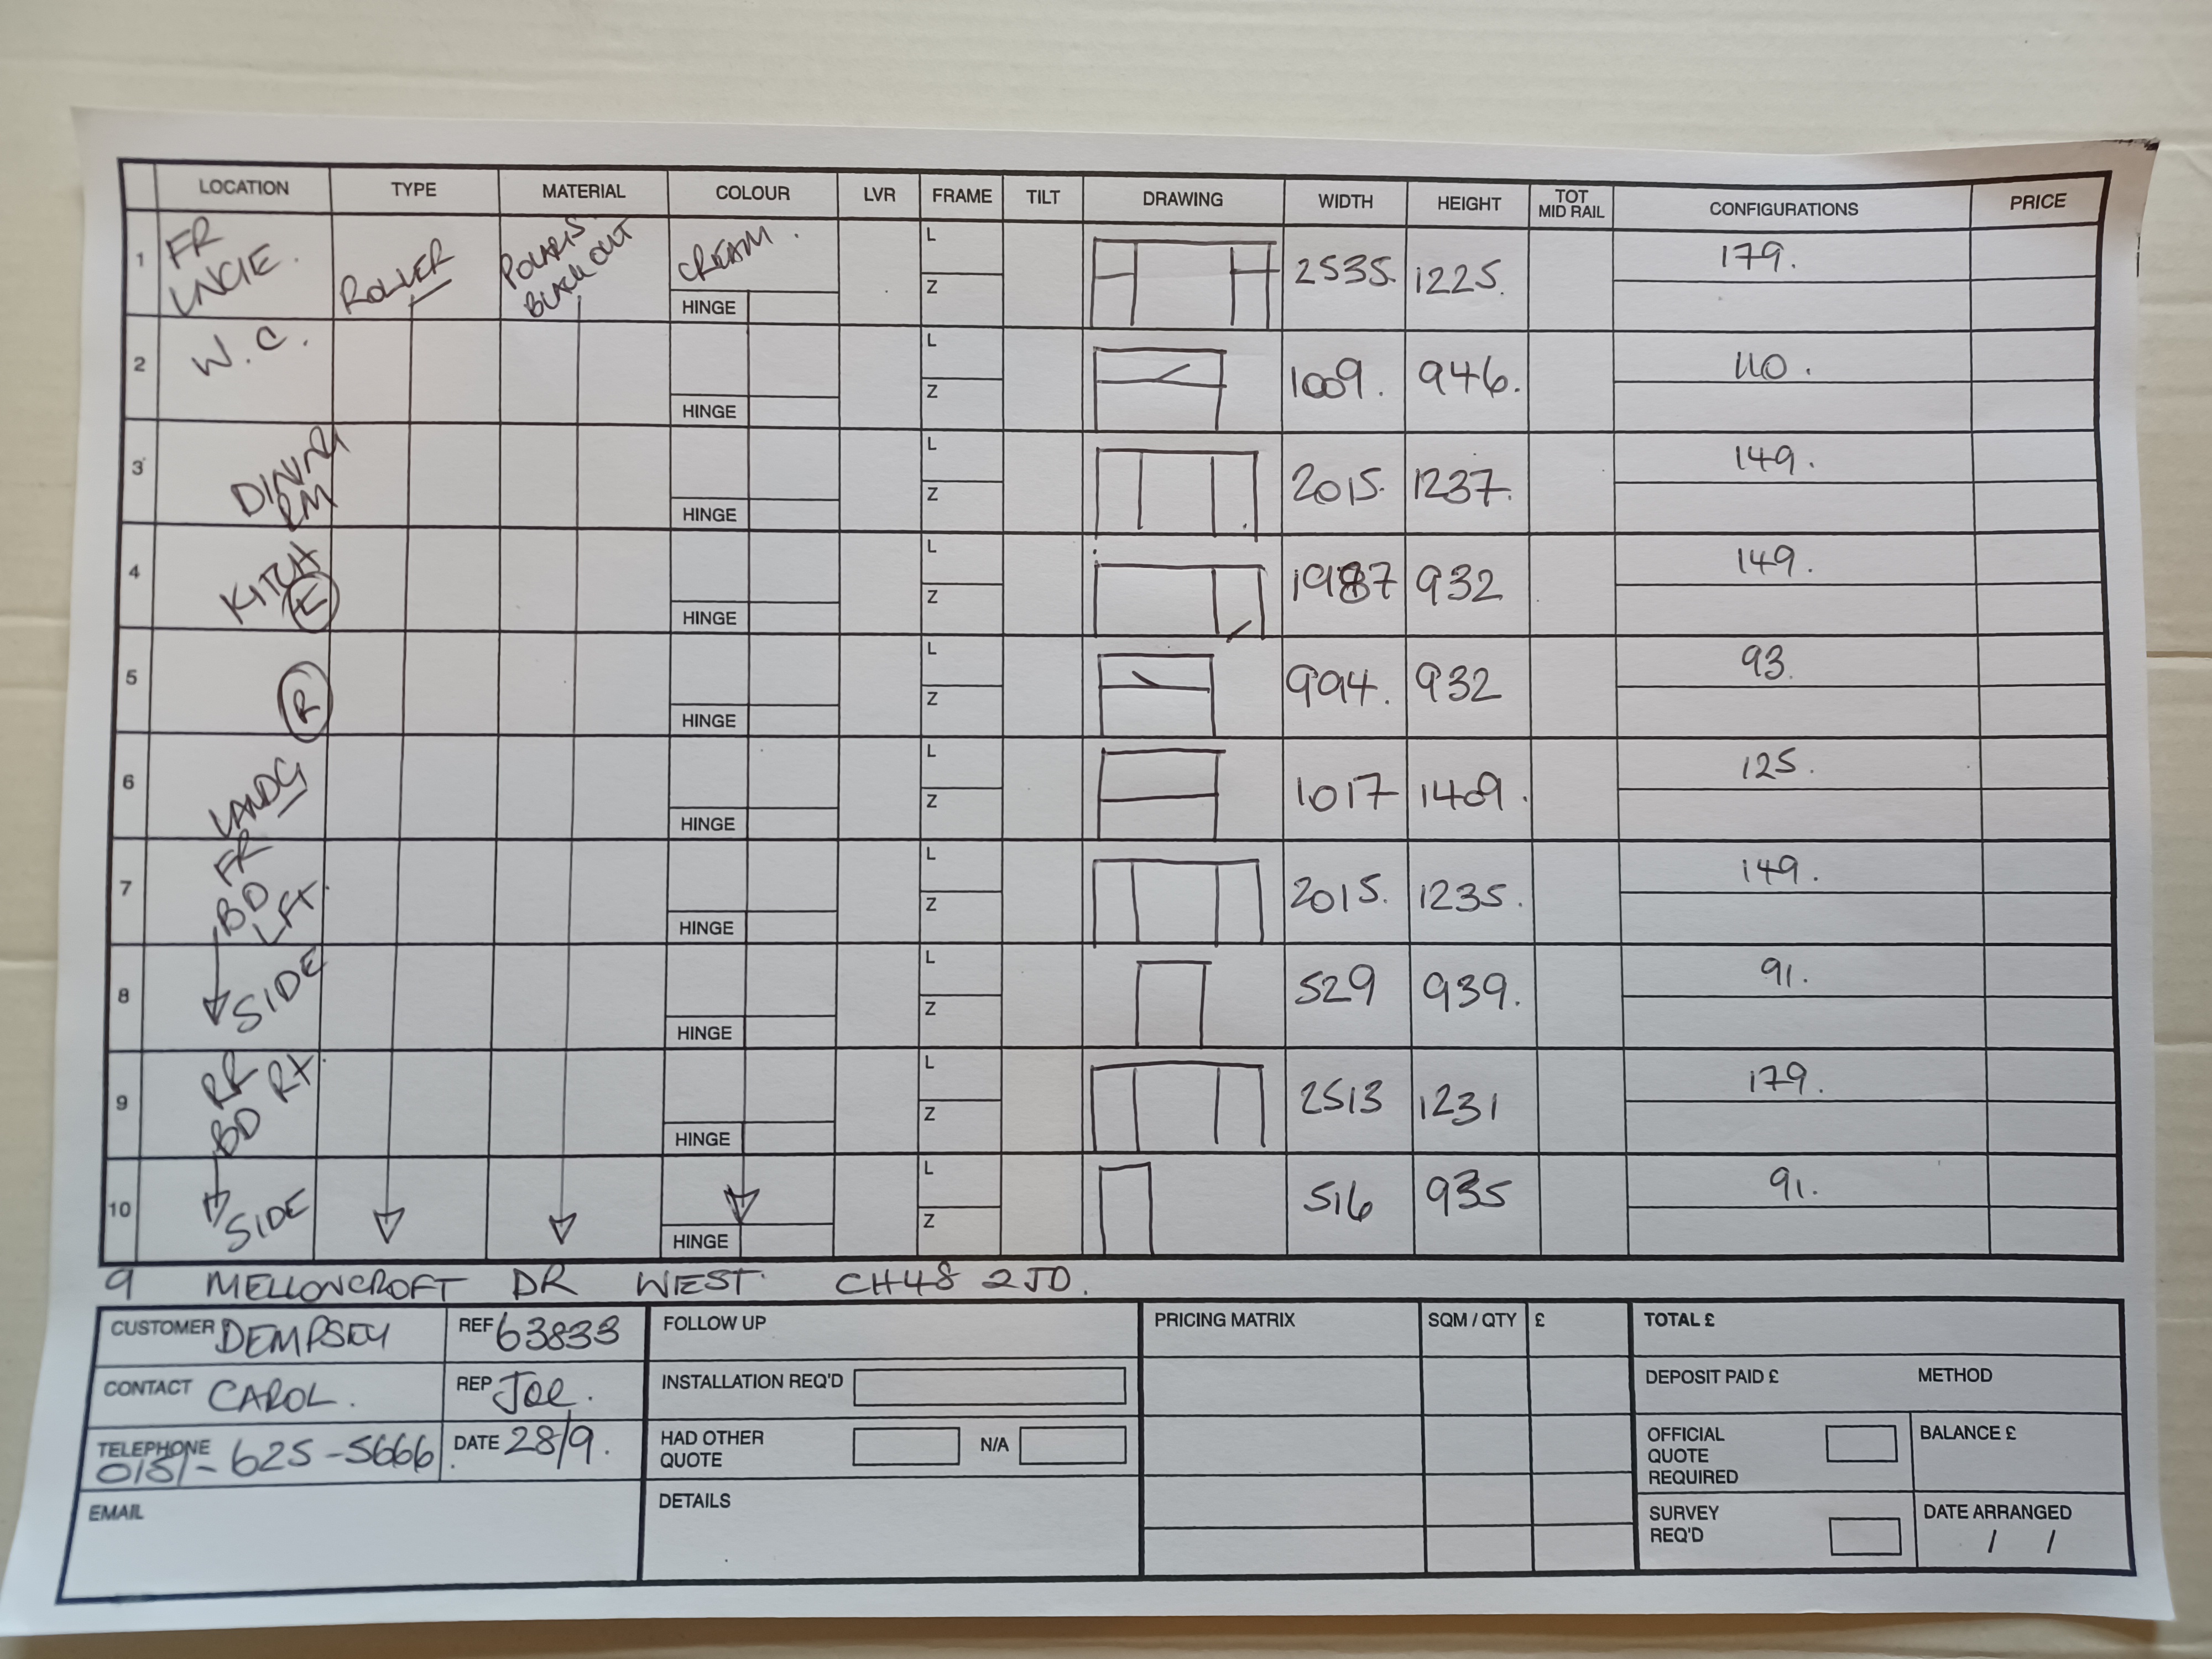 LOCATION TYPE MATERIAL COLOUR LVR FRAME TILT DRAWING WIDTH HEIGHT TOT MID RAIL CONFIGURATIONS PRICE
1 FR LNGE. ROLLER POLARIS BLACKOUT CREAM. HINGE L Z 2535. 1225. 179.
2 W.C. HINGE L Z 1009. 946. 110.
3 DINING RM HINGE L Z 2015. 1237. 149.
4 KITCH HINGE L Z 1987 932 149.
5 R HINGE L Z 994. 932 93.
6 LANDG HINGE L Z 1017 1409. 125.
7 FR BD LFT. HINGE L Z 2015. 1235. 149.
8 SIDE HINGE L Z 529 939. 91.
9 RR BD RT. HINGE L Z 2513 1231 179.
10 SIDE HINGE L Z 516 935 91.
9 MELLONCROFT DR WEST. CH48 2JD.
CUSTOMER DEMPSEY REF 63833 FOLLOW UP PRICING MATRIX SQM / QTY £ TOTAL £
CONTACT CAROL. REP Joe. INSTALLATION REQ'D DEPOSIT PAID £ METHOD
TELEPHONE 0151-625-5666 DATE 28/9. HAD OTHER QUOTE N/A OFFICIAL QUOTE REQUIRED BALANCE £
EMAIL DETAILS SURVEY REQ'D DATE ARRANGED / /